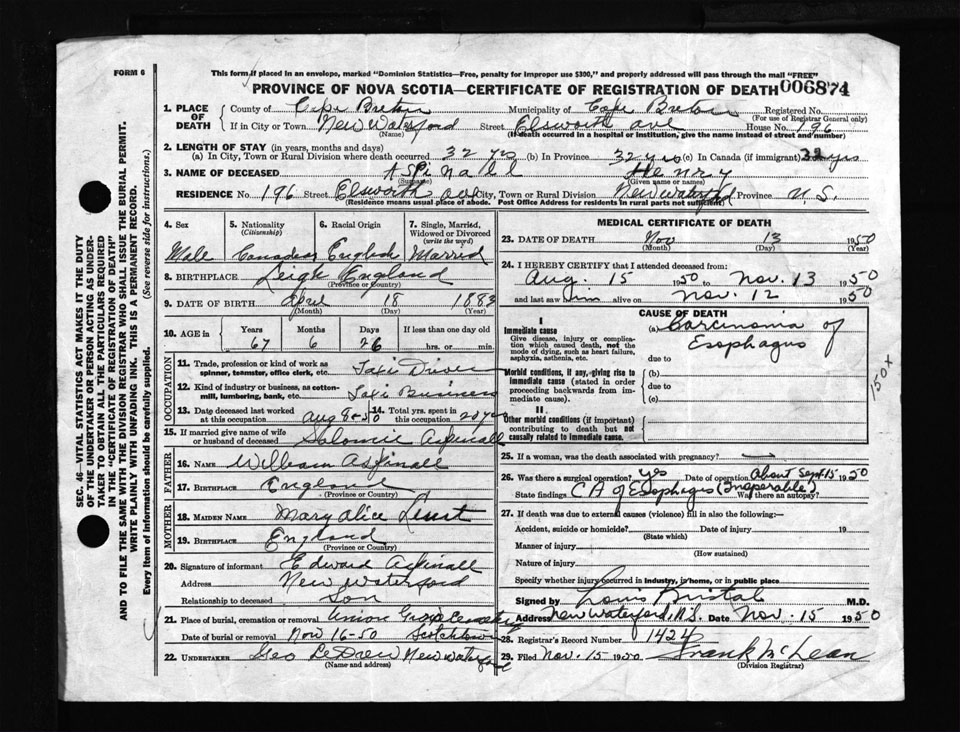 FORM 6
This form if placed in an envelope, marked "Dominion Statistics—Free, penalty for improper use $300," and properly addressed will pass through the mail "FREE"
PROVINCE OF NOVA SCOTIA—CERTIFICATE OF REGISTRATION OF DEATH 006874
1. PLACE OF DEATH
County of Cape Breton Municipality of Cape Breton Registered No.
(For use of Registrar General only)
If in City or Town New Waterford Street Elsworth ave House No. 196
(Name) (If death occurred in a hospital or institution, give the name instead of street and number)
2. LENGTH OF STAY (in years, months and days)
(a) In City, Town or Rural Division where death occurred 32 yrs (b) In Province 32 yrs (c) In Canada (if immigrant) 32 yrs
3. NAME OF DECEASED Aspinall Henry
(Surname) (Given name or names)
RESIDENCE No. 196 Street Elsworth ave City, Town or Rural Division New Waterford Province N.S.
(Residence means usual place of abode. Post Office Address for residents in rural parts not sufficient)
4. Sex 5. Nationality (Citizenship) 6. Racial Origin 7. Single, Married, Widowed or Divorced (write the word)
Male Canadian English Married
8. BIRTHPLACE Leigh England
(Province or Country)
9. DATE OF BIRTH April 18 1883
(Month) (Day) (Year)
10. AGE in Years Months Days If less than one day old
67 6 26 hrs. or min.
OCCUPATION
11. Trade, profession or kind of work as spinner, teamster, office clerk, etc. Taxi Driver
12. Kind of industry or business, as cotton-mill, lumbering, bank, etc. Taxi Business
13. Date deceased last worked at this occupation aug 8-50 14. Total yrs. spent in this occupation 20 yrs
15. If married give name of wife or husband of deceased Salomie Aspinall
FATHER
16. NAME William Aspinall
17. BIRTHPLACE England
(Province or Country)
MOTHER
18. MAIDEN NAME Mary Alice
19. BIRTHPLACE England
(Province or Country)
20. Signature of informant Edward Aspinall
Address New Waterford
Relationship to deceased Son
21. Place of burial, cremation or removal Union Grove Cemetery
Date of burial or removal Nov 16-50 Scotchtown
22. UNDERTAKER Geo LeDrew New Waterford
(Name and address)
MEDICAL CERTIFICATE OF DEATH
23. DATE OF DEATH Nov 13 1950
(Month) (Day) (Year)
24. I HEREBY CERTIFY that I attended deceased from:
Aug. 15 1950 to Nov. 13 1950
and last saw him alive on Nov. 12 1950
CAUSE OF DEATH
I
Immediate cause (a) Carcinomia of Esophagus
Give disease, injury or complication which caused death, not the mode of dying, such as heart failure, asphyxia, asthenia, etc.
due to
Morbid conditions, if any, giving rise to immediate cause (stated in order proceeding backwards from immediate cause).
(b)
due to
(c)
II
Other morbid conditions (if important) contributing to death but not causally related to immediate cause.
150x
25. If a woman, was the death associated with pregnancy? —
26. Was there a surgical operation? yes Date of operation about Sept. 15 1950
State findings CA of Esophagus (Inoperable) Was there an autopsy?
27. If death was due to external causes (violence) fill in also the following:—
Accident, suicide or homicide? Date of injury 19
(State which)
Manner of injury
(How sustained)
Nature of injury
Specify whether injury occurred in industry, in home, or in public place
Signed by Louis Bristol M.D.
Address New Waterford, N.S. Date Nov. 15 1950
28. Registrar's Record Number 1424
29. Filed Nov. 15 1950 Frank McLean
(Division Registrar)
SEC. 46—VITAL STATISTICS ACT MAKES IT THE DUTY
OF THE UNDERTAKER OR PERSON ACTING AS UNDER-
TAKER TO OBTAIN ALL THE PARTICULARS REQUIRED
IN THE "CERTIFICATE OF REGISTRATION OF DEATH"
AND TO FILE THE SAME WITH THE DIVISION REGISTRAR WHO SHALL ISSUE THE BURIAL PERMIT.
WRITE PLAINLY WITH UNFADING INK. THIS IS A PERMANENT RECORD.
Every item of information should be carefully supplied. (See reverse side for instructions.)